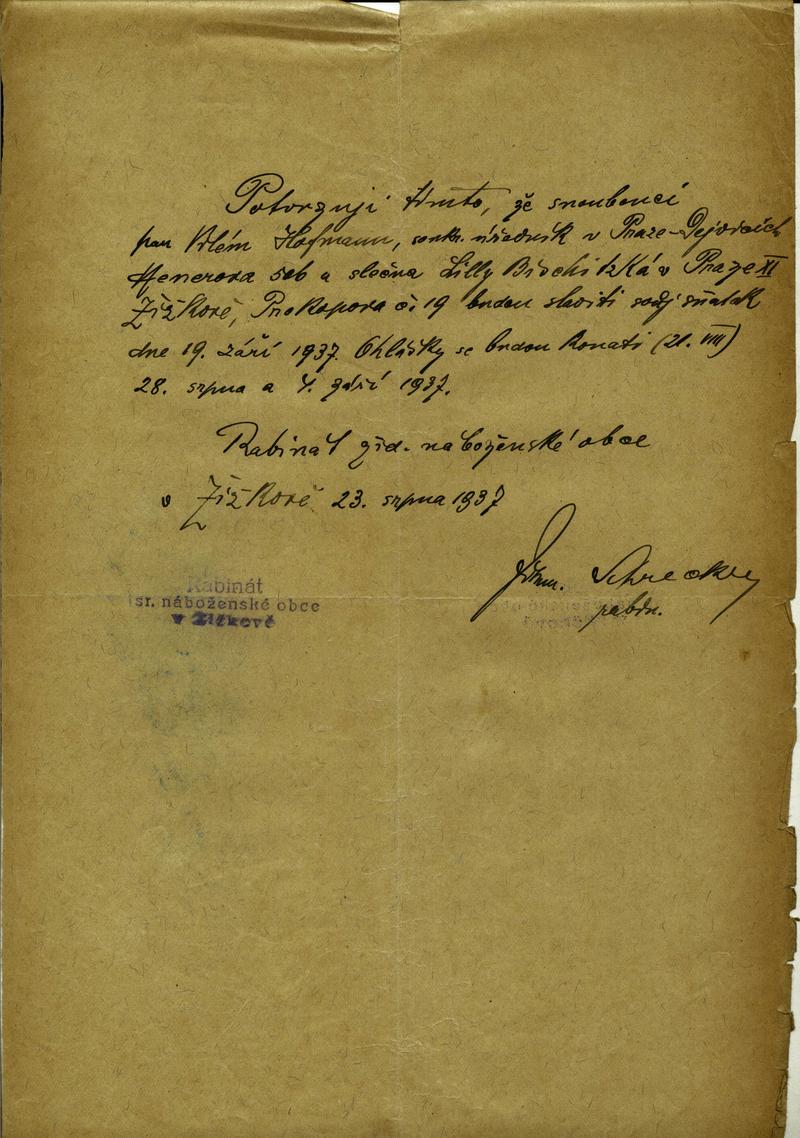 Potvrzuji tímto, že snoubenci
pan Vilém Hofmann, soukr. úředník v Praze-Dejvicích
a slečna Lilly Bischitzká v Praze XI
Žižkově, Prokopova č. 19 budou slaviti svůj sňatek
dne 19. září 1937. Ohlášky se budou konati (21. VIII)
28. srpna a 4. září 1937.
Rabinát žid. náboženské obce
v Žižkově 23. srpna 1937
Schrecker
rabín.
Rabinát
isr. náboženské obce
v Žižkově